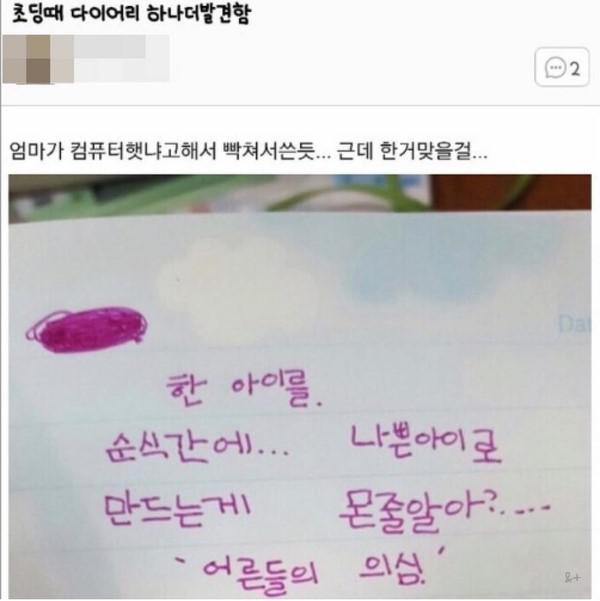 초딩때 다이어리 하나더발견함
2
엄마가 컴퓨터햇냐고해서 빡쳐서쓴듯... 근데 한거맞을걸...
Dat
한 아이를.
순식간에... 나쁜아이로
만드는게 몬줄알아?....
`어른들의 의심.'
&+